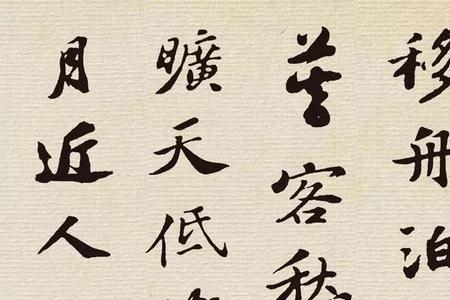 移舟泊
暮客
曠天低
月近人